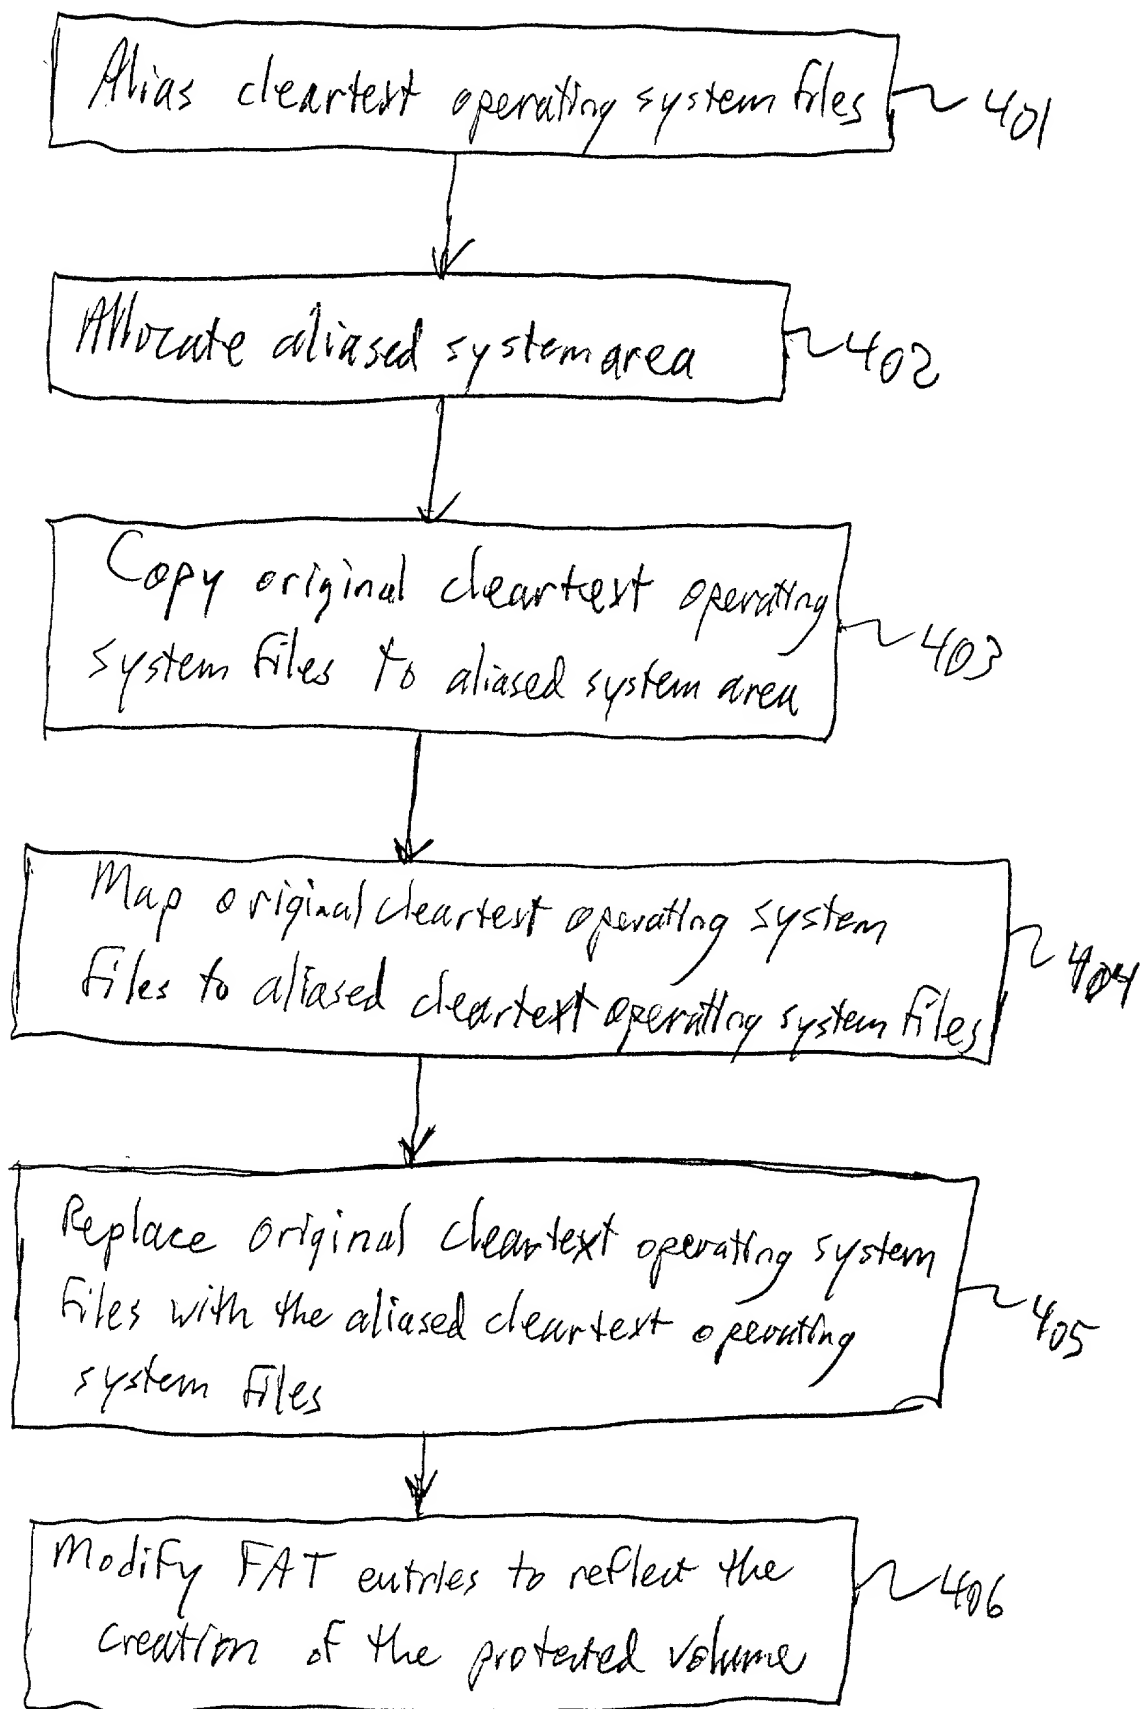 Alias cleartext operating system files 401
Allocate aliased system area 402
Copy original cleartext operating
system files to aliased system area 403
Map original cleartext operating system
files to aliased cleartext operating system files 404
Replace original cleartext operating system
files with the aliased cleartext operating
system files 405
Modify FAT entries to reflect the
creation of the protected volume 406